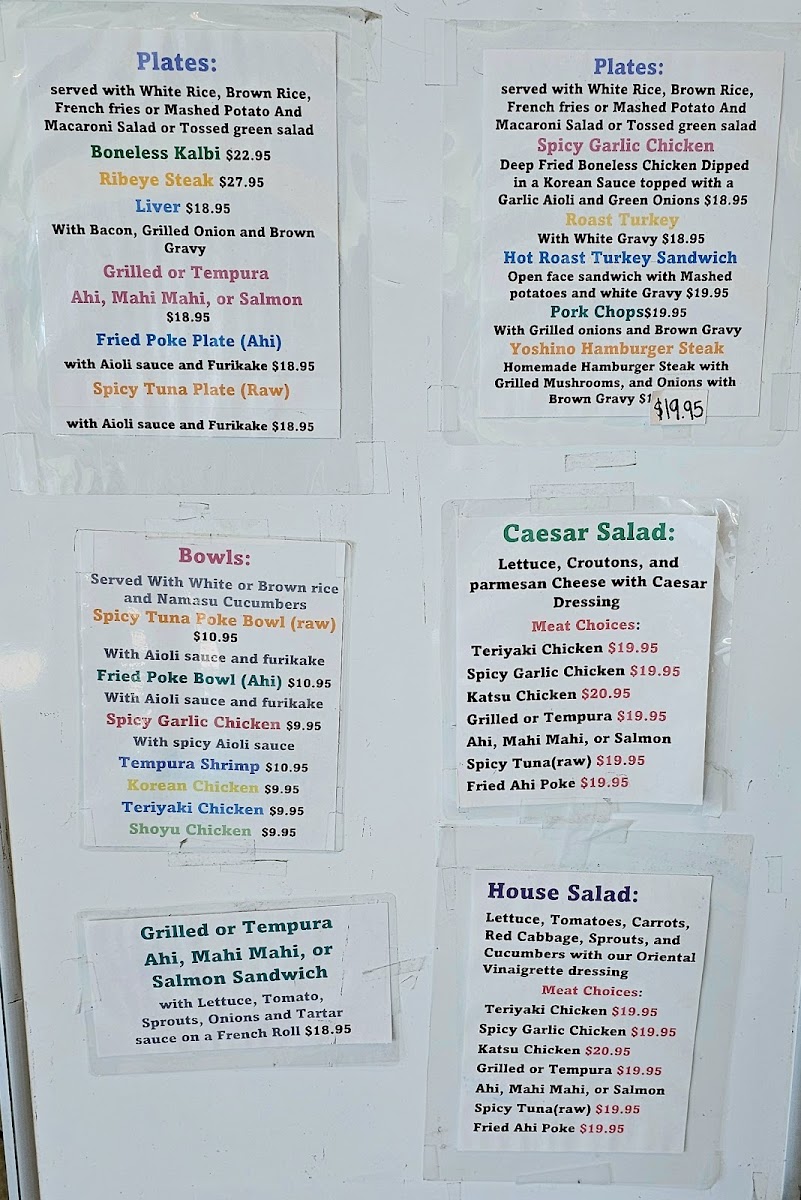 Plates:
served with White Rice, Brown Rice,
French fries or Mashed Potato And
Macaroni Salad or Tossed green salad
Boneless Kalbi $22.95
Ribeye Steak $27.95
Liver $18.95
With Bacon, Grilled Onion and Brown
Gravy
Grilled or Tempura
Ahi, Mahi Mahi, or Salmon
$18.95
Fried Poke Plate (Ahi)
with Aioli sauce and Furikake $18.95
Spicy Tuna Plate (Raw)
with Aioli sauce and Furikake $18.95
Plates:
served with White Rice, Brown Rice,
French fries or Mashed Potato And
Macaroni Salad or Tossed green salad
Spicy Garlic Chicken
Deep Fried Boneless Chicken Dipped
in a Korean Sauce topped with a
Garlic Aioli and Green Onions $18.95
Roast Turkey
With White Gravy $18.95
Hot Roast Turkey Sandwich
Open face sandwich with Mashed
potatoes and white Gravy $19.95
Pork Chops$19.95
With Grilled onions and Brown Gravy
Yoshino Hamburger Steak
Homemade Hamburger Steak with
Grilled Mushrooms, and Onions with
Brown Gravy $1
$19.95
Bowls:
Served With White or Brown rice
and Namasu Cucumbers
Spicy Tuna Poke Bowl (raw)
$10.95
With Aioli sauce and furikake
Fried Poke Bowl (Ahi) $10.95
With Aioli sauce and furikake
Spicy Garlic Chicken $9.95
With spicy Aioli sauce
Tempura Shrimp $10.95
Korean Chicken $9.95
Teriyaki Chicken $9.95
Shoyu Chicken $9.95
Caesar Salad:
Lettuce, Croutons, and
parmesan Cheese with Caesar
Dressing
Meat Choices:
Teriyaki Chicken $19.95
Spicy Garlic Chicken $19.95
Katsu Chicken $20.95
Grilled or Tempura $19.95
Ahi, Mahi Mahi, or Salmon
Spicy Tuna(raw) $19.95
Fried Ahi Poke $19.95
Grilled or Tempura
Ahi, Mahi Mahi, or
Salmon Sandwich
with Lettuce, Tomato,
Sprouts, Onions and Tartar
sauce on a French Roll $18.95
House Salad:
Lettuce, Tomatoes, Carrots,
Red Cabbage, Sprouts, and
Cucumbers with our Oriental
Vinaigrette dressing
Meat Choices:
Teriyaki Chicken $19.95
Spicy Garlic Chicken $19.95
Katsu Chicken $20.95
Grilled or Tempura $19.95
Ahi, Mahi Mahi, or Salmon
Spicy Tuna(raw) $19.95
Fried Ahi Poke $19.95